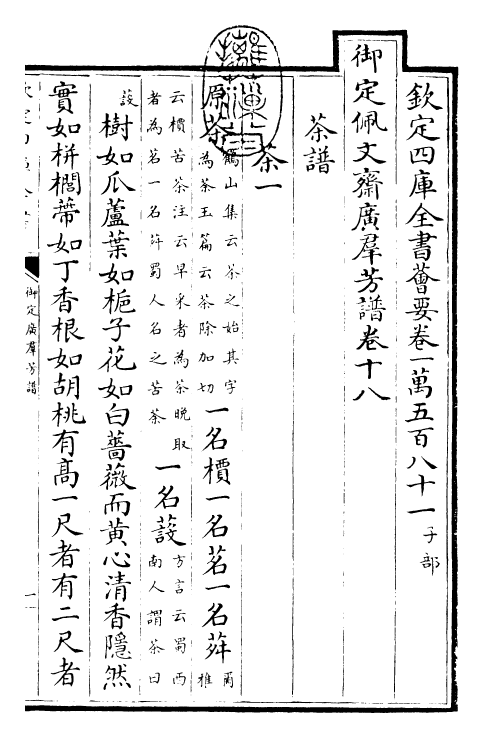 欽定四庫全書薈要卷一萬五百八十一 子部
御定佩文齋廣羣芳譜卷十八
茶譜
茶一
原茶 鶴山集云茶之始其字
為荼玉篇云荼除加切 一名檟一名茗一名荈 爾雅
云檟苦荼注云早采者為茶晚取
者為茗一名荈蜀人名之苦荼 一名蔎 方言云蜀西
南人謂茶曰
蔎 樹如瓜蘆葉如梔子花如白薔薇而黄心清香隱然
實如栟櫚蔕如丁香根如胡桃有髙一尺者有二尺者
御定廣羣芳譜
一